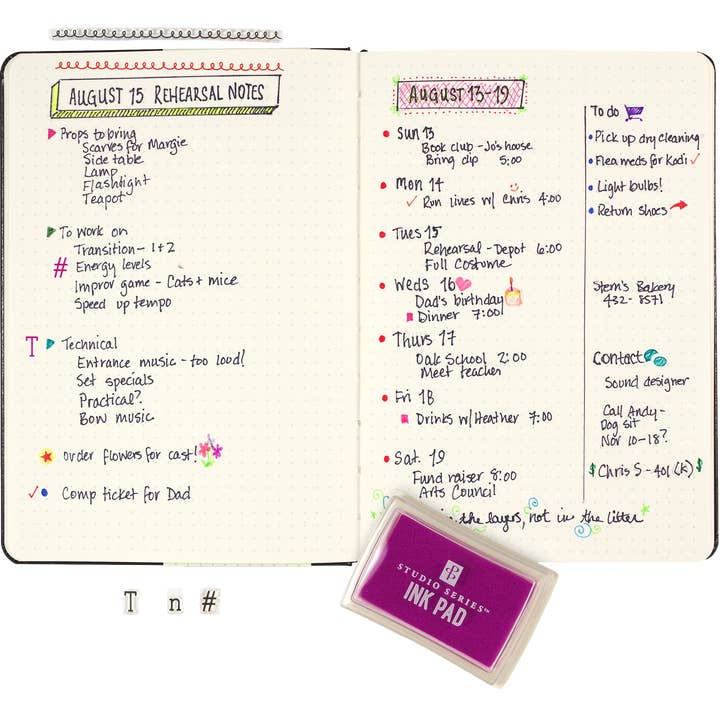 AUGUST 15 REHEARSAL NOTES
Props to bring
Scarves for Margie
Side table
Lamp
Flashlight
Teapot
To work on
Transition - 1+2
# Energy levels
Improv game - Cats + mice
Speed up tempo
T Technical
Entrance music - too loud!
Set specials
Practical?
Bow music
order flowers for cast!
Comp ticket for Dad
AUGUST 13-19
Sun 13
Book club - Jo's house
Bring dip 5:00
Mon 14
Run lines w/ Chris 4:00
Tues 15
Rehearsal - Depot 6:00
Full Costume
Weds 16
Dad's birthday
Dinner 7:00
Thurs 17
Oak School 2:00
Meet teacher
Fri 18
Drinks w/Heather 7:00
Sat. 19
Fund raiser 8:00
Arts Council
in the layers, not in the litter
To do
Pick up dry cleaning
Flea meds for Kodi
Light bulbs!
Return shoes
Stern's Bakery
432-8571
Contact
Sound designer
Call Andy-
Dog sit
Nov 10-18?
$ Chris S - 401(k) $
T n #
STUDIO SERIES™
INK PAD